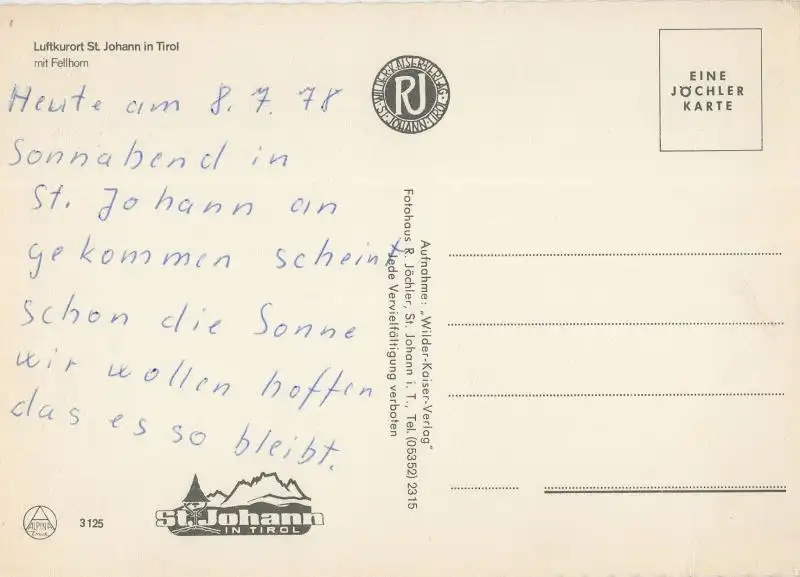 Luftkurort St. Johann in Tirol
mit Fellhorn
Heute am 8. 7. 78
Sonnabend in
St. Johann an
gekommen scheint
schon die Sonne
wir wollen hoffen
das es so bleibt.
WILDER-KAISER-VERLAG
RJ
ST. JOHANN-TIROL
EINE
JÖCHLER
KARTE
Aufnahme: „Wilder-Kaiser-Verlag"
Fotohaus R. Jöchler, St. Johann i. T., Tel. (05352) 2315
Jede Vervielfältigung verboten
ALPINA
Druck
3125
St. Johann
IN TIROL